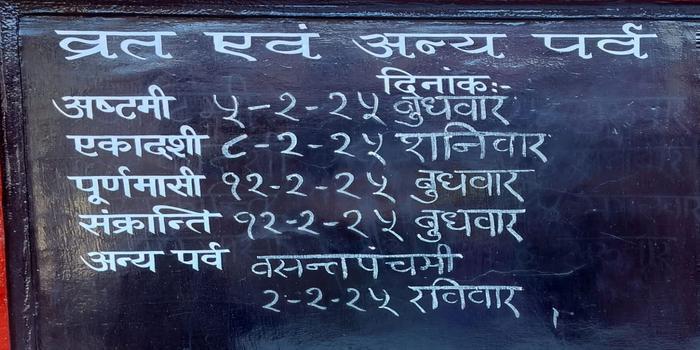 व्रत एवं अन्य पर्व
दिनांक:-
अष्टमी ५-२-२५ बुधवार
एकादशी ८-२-२५ शनिवार
पूर्णमासी १२-२-२५ बुधवार
संक्रान्ति १२-२-२५ बुधवार
अन्य पर्व वसन्त पंचमी
२-२-२५ रविवार